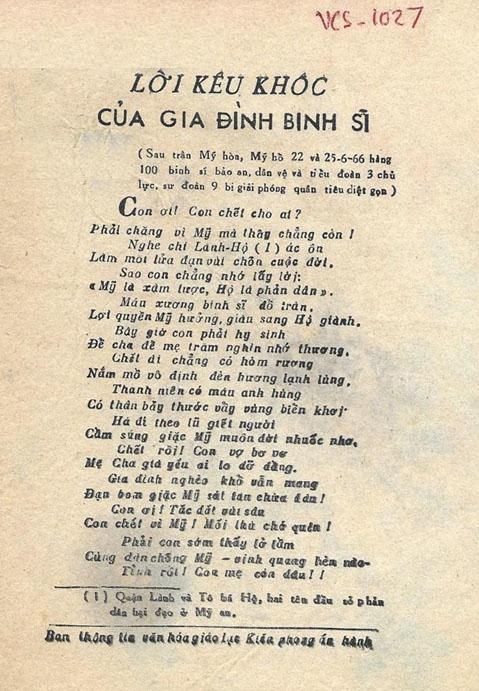 VCS-1027
LỜI KÊU KHÓC
CỦA GIA ĐÌNH BINH SĨ
( Sau trận Mỹ hòa, Mỹ hồ 22 và 25-6-66 hàng
100 binh sĩ bảo an, dân vệ và tiểu đoàn 3 chủ
lực, sư đoàn 9 bị giải phóng quân tiêu diệt gọn )
Con ơi! Con chết cho ai?
Phải chăng vì Mỹ mà thây chẳng còn !
Nghe chi Lành-Hộ ( 1 ) ác ôn
Làm mồi lửa đạn vùi chôn cuộc đời.
Sao con chẳng nhớ lấy lời:
«Mỹ là xâm lược, Hộ là phản dân».
Máu xương binh sĩ đổ tràn,
Lợi quyền Mỹ hưởng, giàu sang Hộ giành.
Bây giờ con phải hy sinh
Để cha để mẹ trăm nghìn nhớ thương,
Chết đi chẳng có hòm rương
Nắm mồ vô định đèn hương lạnh lùng,
Thanh niên có máu anh hùng
Có thân bảy thước vẫy vùng biển khơi
Há đi theo lũ giết người
Cầm súng giặc Mỹ muôn đời nhuốc nhơ,
Chết rồi ! Con vợ bơ vơ
Mẹ Cha già yếu ai lo đỡ đằng.
Gia đình nghèo khổ vẫn mang
Đạn bom giặc Mỹ sát tan chửa đâu !
Con ơi ! Tấc đất vùi sâu
Con chết vì Mỹ ! Mối thù chớ quên !
Phải con sớm thấy lỗi lầm
Cùng dân chống Mỹ - vinh quang hẻm nào-
Tỉnh rồi ! Con mẹ còn đâu ! !
( 1 ) Quận Lành và Tô bá Hộ, hai tên đầu sỏ phản
dân hại đạo ở Mỹ an.
Ban thông tin văn hóa giáo dục Kiến phong ấn hành